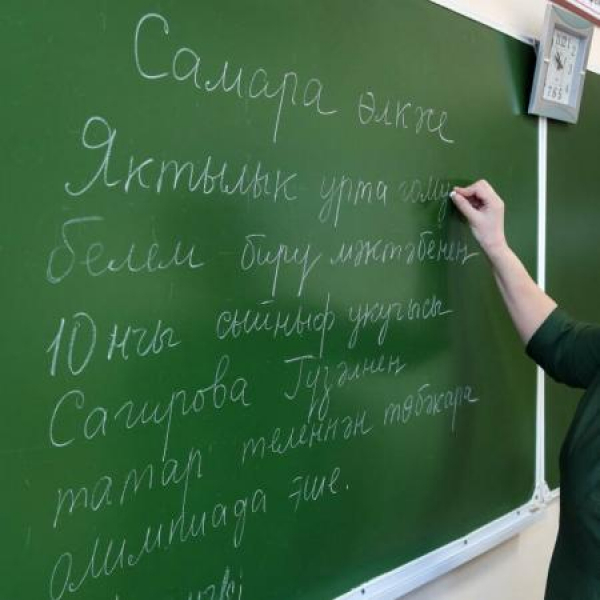 Самара өлкәсе
Яктылык урта гому
белем бирү мәктәбенең
10 нчы сыйныф укучысы
Сагирова Гүзәлнең
татар теленнән төбәкара
олимпиада эше.